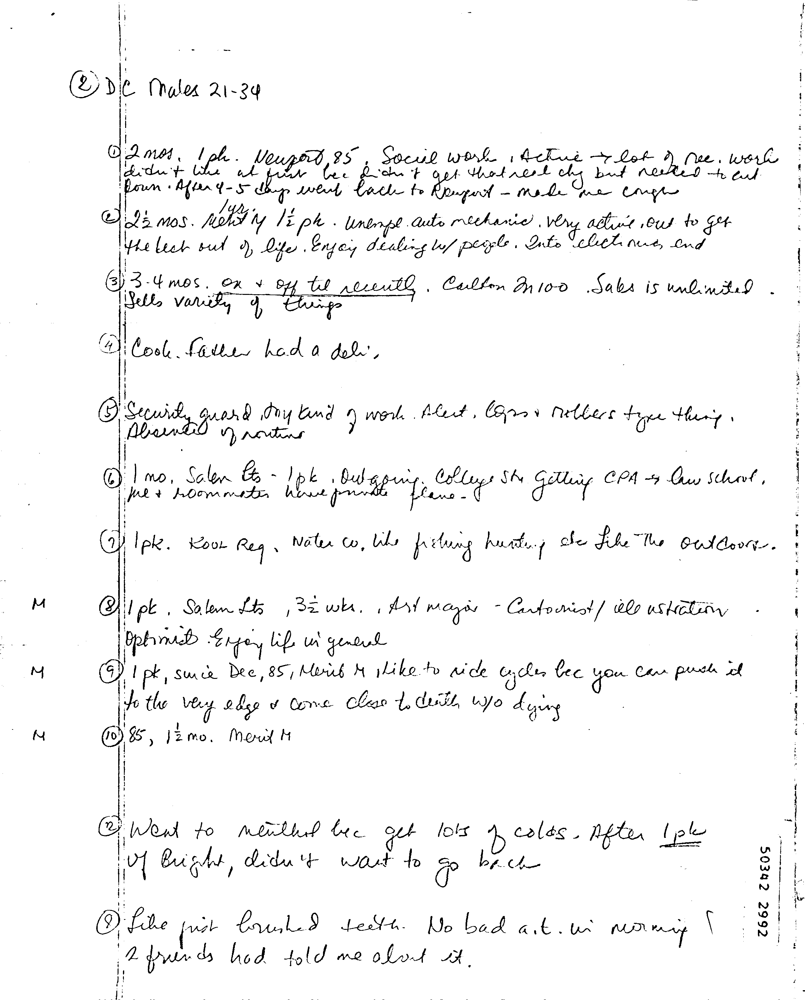 ② DC Males 21-34
① 2 mos. 1 pk. Newport, 85, Social work, Active → lot of rec. work
didn't like at first bec didn't get that real chg but needed to cut
down. After 4-5 days went back to Newport - made me cough
② 2½ mos. 1 yr. Merit M 1½ pk. Unempl. auto mechanic. very active, out to get
the best out of life. Enjoy dealing w/ people. Into electronics end
③ 3-4 mos. on & off til recently. Carlton M 100. Sales is unlimited.
Sells variety of things
④ Cook. Father had a deli.
⑤ Security guard, Any kind of work. Alert. Cops & robbers type thing.
Absence of routine
⑥ 1 mo. Salem Lts - 1 pk. Outgoing. College St. Getting CPA → law school.
me & roommates have private plane -
⑦ 1 pk. Kool Reg. Water co, like fishing hunting etc Like the outdoors.
M ⑧ 1 pk. Salem Lts, 3½ wks., Art major - Cartoonist/illustration
Optimist. Enjoy life in general
M ⑨ 1 pk, since Dec, 85, Merit M, Like to ride cycles bec you can push it
to the very edge & come close to death w/o dying
M ⑩ 85, 1½ mo. Merit M
② Went to menthol bec get lots of colds. After 1 pk
of Bright, didn't want to go back
⑨ Like just brushed teeth. No bad a.t. in morning
2 friends had told me about it.
50342 2992